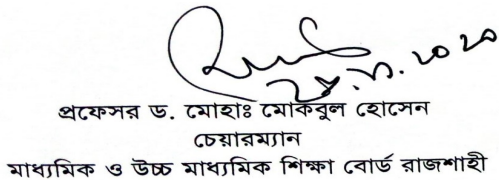 ২৮.৭.২০২০
প্রফেসর ড. মোহাঃ মোকবুল হোসেন
চেয়ারম্যান
মাধ্যমিক ও উচ্চ মাধ্যমিক শিক্ষা বোর্ড রাজশাহী